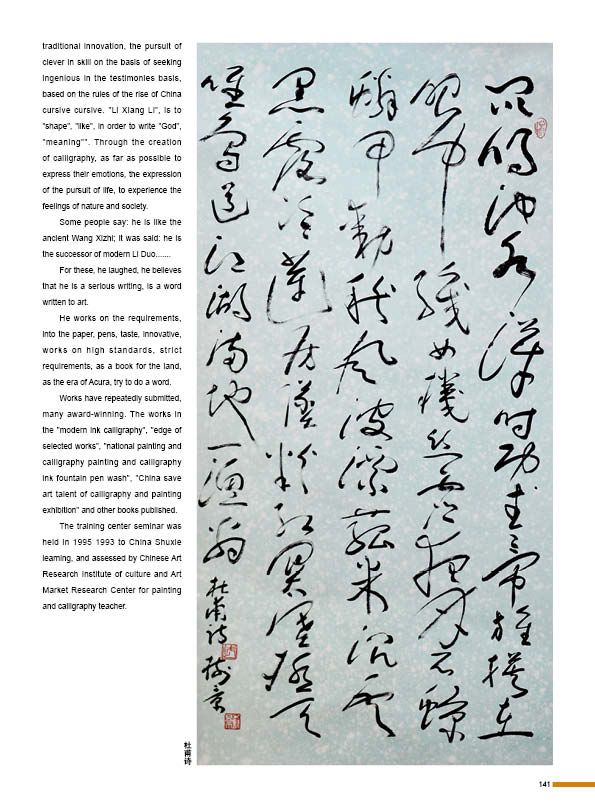 traditional innovation, the pursuit of
clever in skill on the basis of seeking
ingenious in the testimonies basis,
based on the rules of the rise of China
cursive cursive. "Li Xiang Li", is to
"shape", "like", in order to write "God",
"meaning"". Through the creation
of calligraphy, as far as possible to
express their emotions, the expression
of the pursuit of life, to experience the
feelings of nature and society.
Some people say: he is like the
ancient Wang Xizhi; it was said: he is
the successor of modern Li Duo.......
For these, he laughed, he believes
that he is a serious writing, is a word
written to art.
He works on the requirements,
into the paper, pens, taste, innovative,
works on high standards, strict
requirements, as a book for the land,
as the era of Acura, try to do a word.
Works have repeatedly submitted,
many award-winning. The works in
the "modern ink calligraphy", "edge of
selected works", "national painting and
calligraphy painting and calligraphy
ink fountain pen wash", "China save
art talent of calligraphy and painting
exhibition" and other books published.
The training center seminar was
held in 1995 1993 to China Shuxie
learning, and assessed by Chinese Art
Research Institute of culture and Art
Market Research Center for painting
and calligraphy teacher.
昆明池水漢时功武帝旌旗在
眼中織女機絲虛夜月石鯨
鱗甲動秋風波漂菰米沉雲
黑露冷蓮房墜粉紅關塞極天
唯鳥道江湖滿地一漁翁
杜甫詩
杜甫诗
141